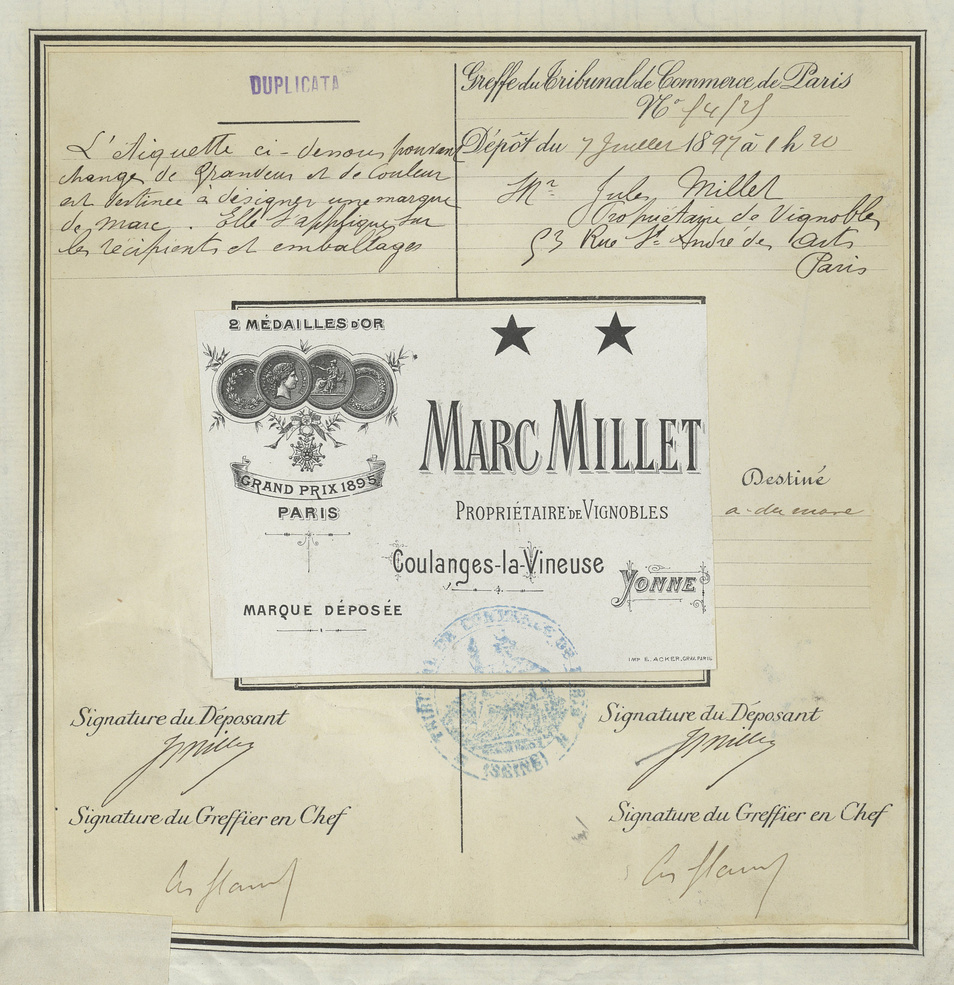 DUPLICATA
L'étiquette ci-dessous pouvant
changer de Grandeur et de Couleur
est destinée à désigner une marque
de marc. Elle s'applique sur
les récipients et emballages
Greffe du Tribunal de Commerce de Paris
Nº
Dépôt du 7 Juillet 1897 à 1 h 20
Mr Jules Millet
Propriétaire de Vignobles
53 Rue St André des Arts
Paris
2 MÉDAILLES D'OR
GRAND PRIX 1895
PARIS
MARQUE DÉPOSÉE
★ ★
MARC MILLET
PROPRIÉTAIRE DE VIGNOBLES
Coulanges-la-Vineuse
YONNE
IMP. E. ACKER, GRAV. PARIS
Destiné
a du marc
TRIBUNAL DE COMMERCE DE PARIS
(SEINE)
Signature du Déposant
JMillet
Signature du Greffier en Chef
Signature du Déposant
JMillet
Signature du Greffier en Chef